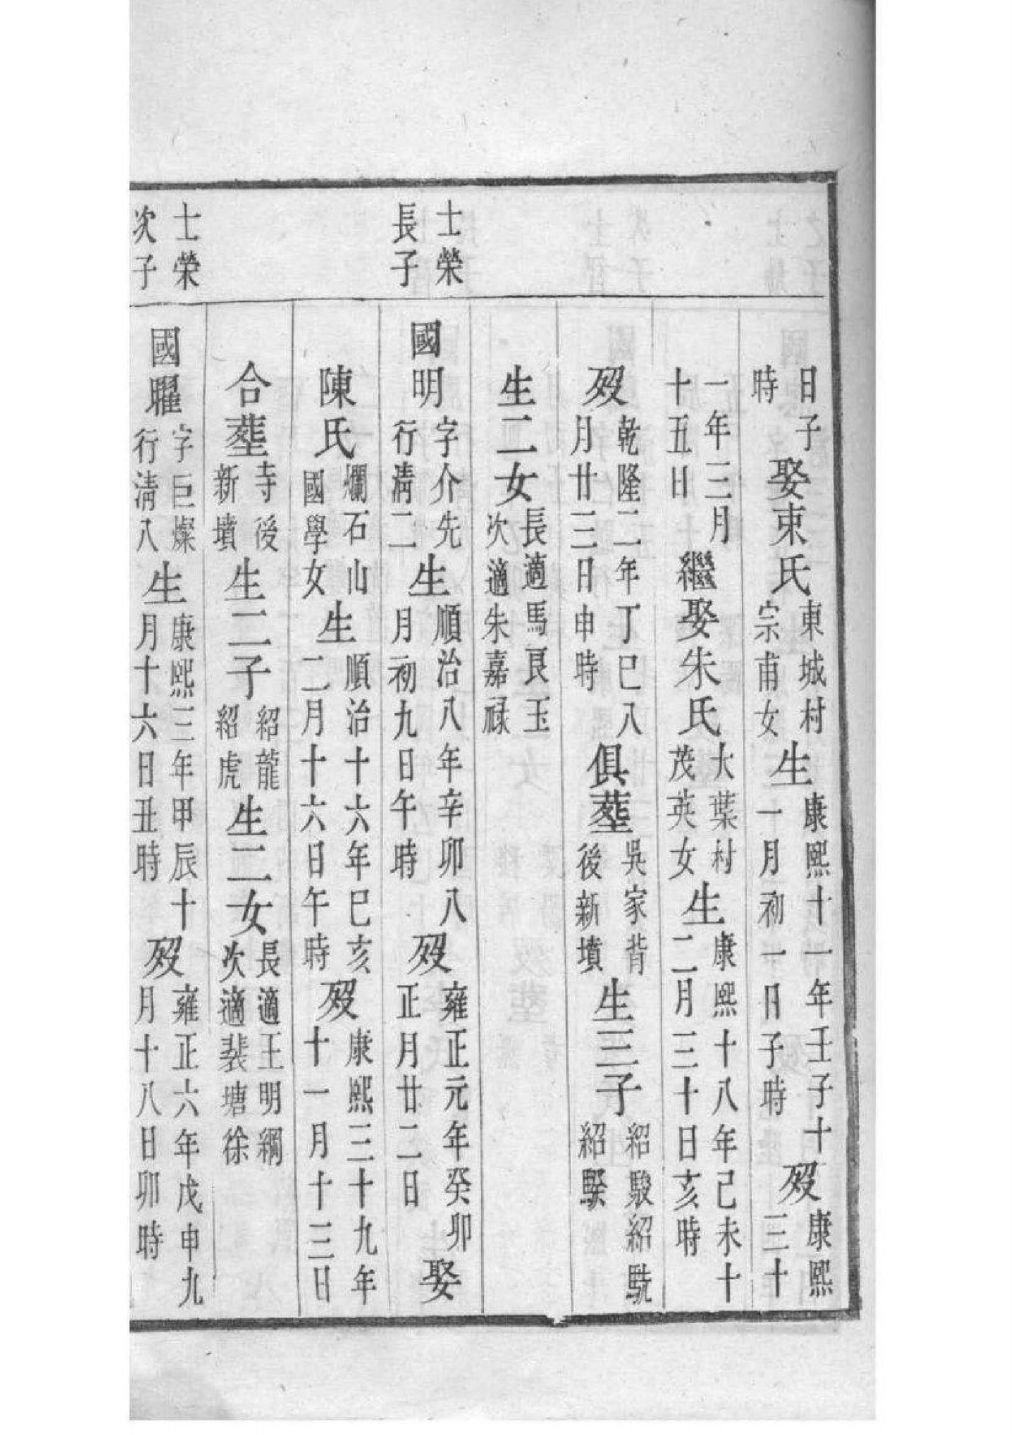 日子時娶束氏東城村宗甫女生康熙十一年壬子十一月初一日子時殁康熙三十
一年三月十五日繼娶朱氏大葉村茂英女生康熙十八年己未十二月三十日亥時
殁乾隆二年丁巳八月廿三日申時俱塟吳家背後新墳生三子紹駿紹駪紹騤
生二女長適馬艮玉次適朱嘉禄
士榮長子
國明字介先行清二生順治八年辛卯八月初九日午時殁雍正元年癸卯正月廿二日娶
陳氏爛石山國學女生順治十六年己亥二月十六日午時殁康熙三十九年十一月十三日
合塟寺後新墳生二子紹龍紹虎生二女長適王明綱次適裴塘徐
士榮次子
國曜字巨燦行清八生康熙三年甲辰十月十六日丑時殁雍正六年戊申九月十八日卯時